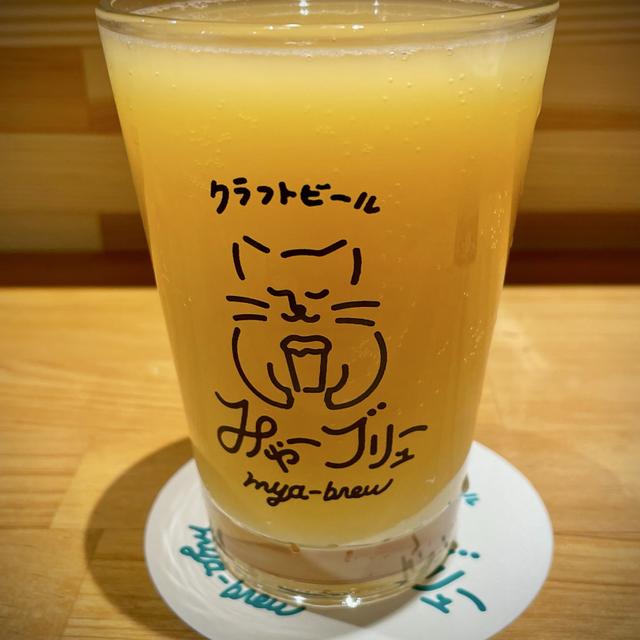 クラフトビール
みゃーブリュー
mya-brew
mya-brew